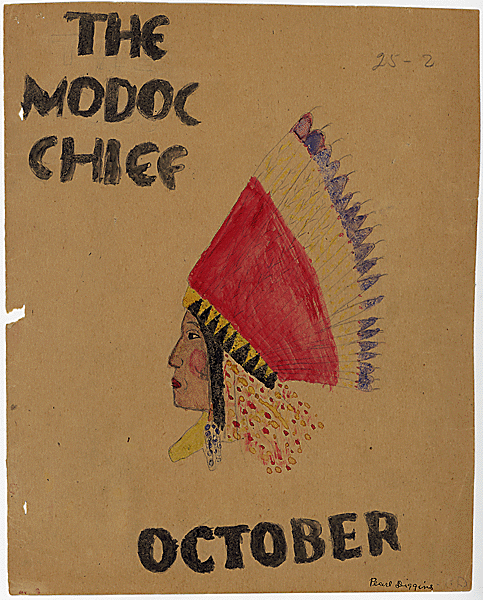 THE
25-2
MODOC
CHIEF
OCTOBER
Pearl Diggins